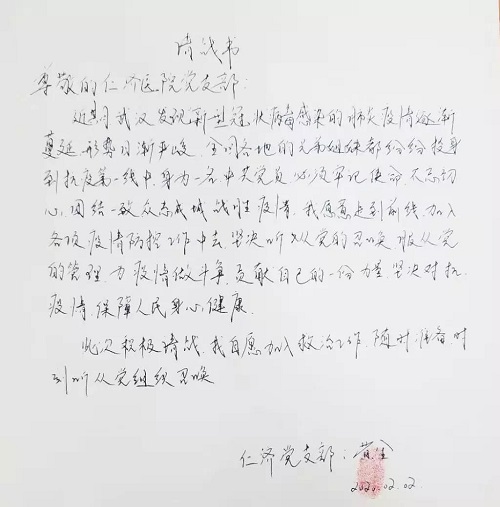 请战书
尊敬的仁济医院党支部：
近期武汉发现新型冠状病毒感染的肺炎疫情逐渐
蔓延，形势日渐严峻，全国各地的兄弟姐妹都纷纷投身
到抗疫第一线中，身为一名中共党员必须牢记使命，不忘初
心，团结一致众志成城战胜疫情，我愿意走到前线，加入
各项疫情防控工作中去，坚决听从党的召唤，服从党
的管理，为疫情做斗争，贡献自己的一份力量，坚决对抗
疫情，保障人民身心健康。
此次积极请战，我自愿加入救治工作，随时准备，时
刻听从党组织召唤
仁济党支部：黄
2020.02.02.